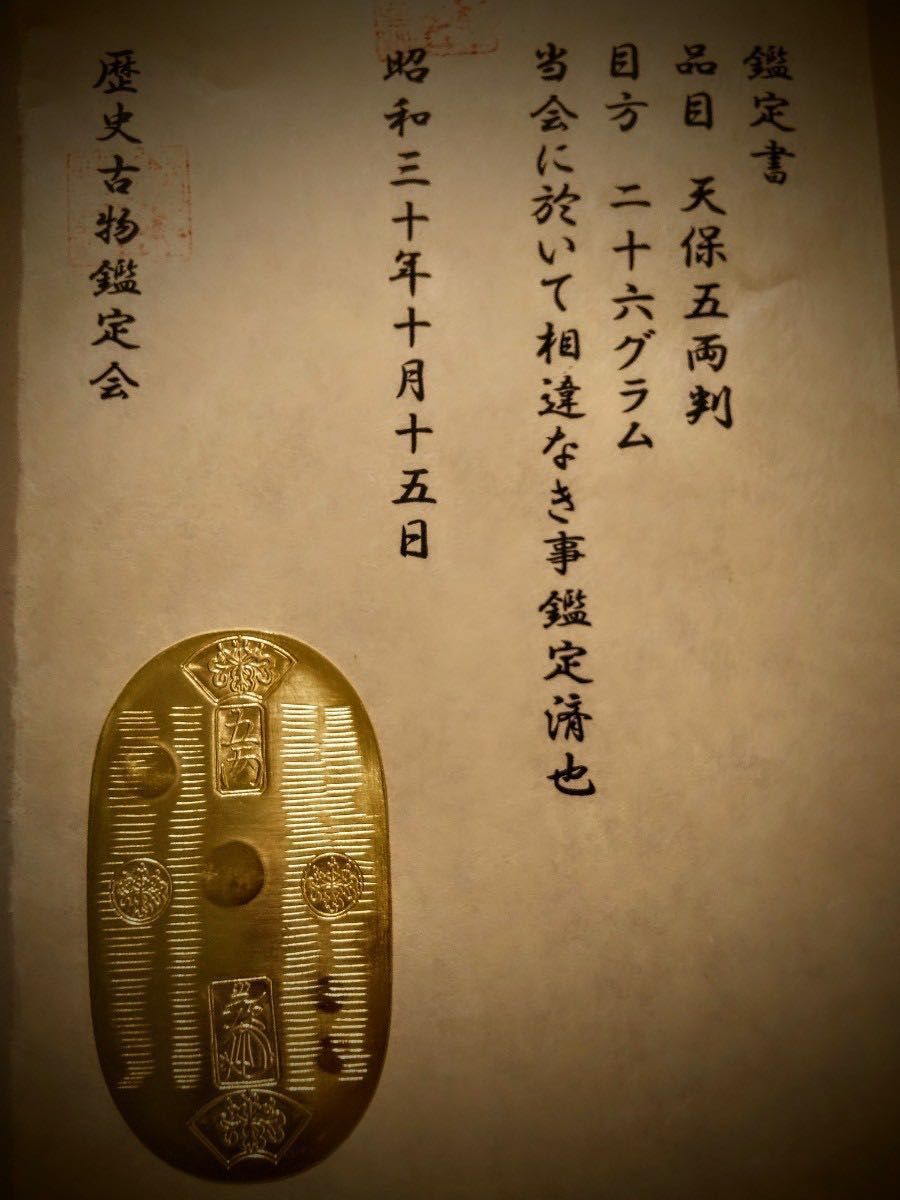 鑑定書
品目 天保五両判
目方 二十六グラム
当会に於いて相違なき事鑑定済也
昭和三十年十月十五日
歴史古物鑑定会
五両